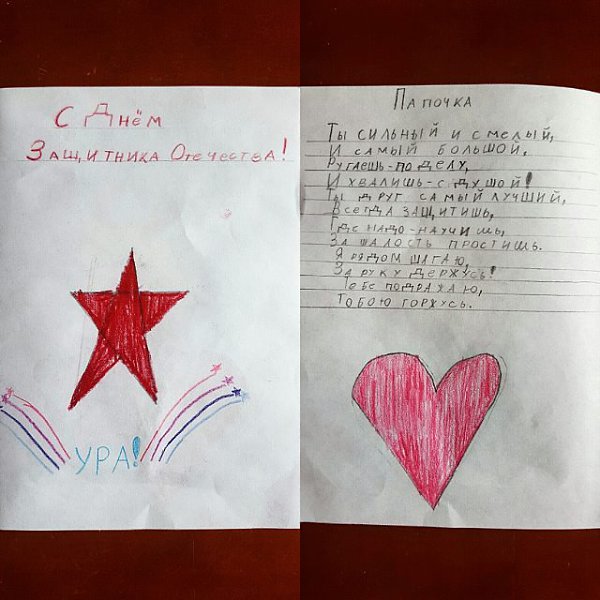 С Днём
Защитника Отечества!
УРА!
Папочка
Ты сильный и смелый,
И самый большой,
Ругаешь-по делу,
И хвалишь-с душой!
Ты друг самый лучший,
Всегда защитишь,
Где надо-научишь,
За шалость простишь.
Я рядом шагаю,
За руку держусь!
Тебе подражаю,
Тобою горжусь.